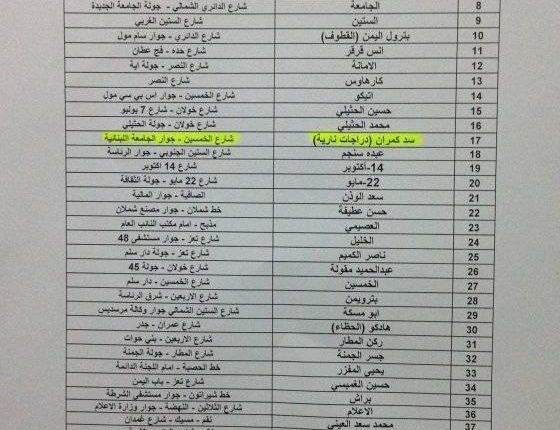 8 الجامعة شارع الدائري الشمالي - جولة الجامعة الجديدة
9 الستين شارع الستين الغربي
10 بترول اليمن (القطوف) شارع الدائري - جوار سام مول
11 انس قرقر شارع حده - فج عطان
12 الامانة شارع النصر - جولة اية
13 كارهاوس شارع النصر
14 اتيكو شارع الخمسين - جوار اس بي سي مول
15 حسين الحثيلي شارع خولان - شارع 7 يوليو
16 محمد الحثيلي شارع خولان - جولة الحثيلي
17 سد كمران (دراجات نارية) شارع الخمسين - جوار الجامعة اللبنانية
18 عبده سنجم شارع الستين الجنوبي - جوار الرئاسة
19 14-أكتوبر شارع 14 اكتوبر
20 22-مايو شارع 22 مايو - جولة الثقافة
21 سعد الوذن الصافية - جوار المالية
22 حسن عطيفة خط شملان - جوار مصنع شملان
23 العصيمي مذبح - امام مكتب النائب العام
24 الخليل شارع تعز - جوار مستشفى 48
25 ناصر الكميم شارع تعز - جولة دار سلم
26 عبدالحميد مقولة شارع خولان - جولة 45
27 الخمسين شارع الخمسين - دار سلم
28 بترويمن شارع الاربعين - شرق الرئاسة
29 ابو مسكة شارع الستين الشمالي جوار وكالة مرسديس
30 هادكو (الحظاء) شارع عمران - جدر
31 ركن المطار شارع الاربعين - بني حوات
32 جسر الجمنة شارع المطار - جولة الجمنة
33 يحيى المقزر خط الحصبة - امام اللجنة الدائمة
34 حسين الغميسي شارع تعز - باب اليمن
35 براش خط شيراتون - جوار مستشفى الشرطة
36 الاعلام شارع الثلاثين - النهضة - جوار وزارة الاعلام
37 محمد سعد العيني نقم - مسيك - شارع غمدان